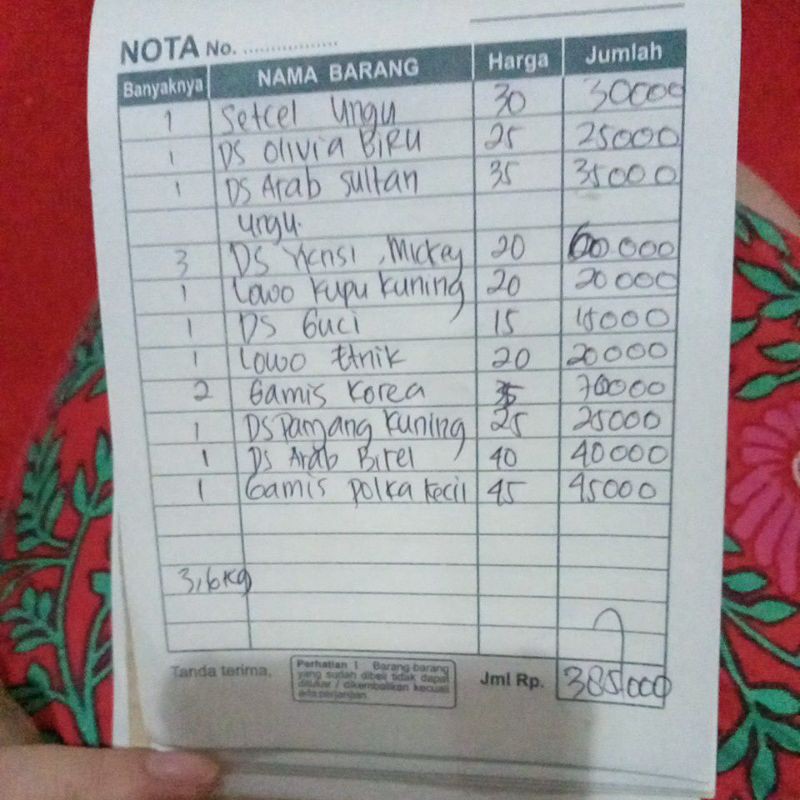 NOTA No. ..................
Banyaknya NAMA BARANG Harga Jumlah
1 Setcel Ungu 30 30000
1 DS Olivia BIRU 25 25000
1 DS Arab Sultan 35 35000
ungu.
3 DS , Mickey 20 60000
1 Lowo Kupu Kuning 20 20000
1 DS Guci 15 15000
1 Lowo Etnik 20 20000
2 Gamis Korea 35 70000
1 DS Panjang Kuning 25 25000
1 DS Arab Birel 40 40000
1 Gamis Polka Kecil 45 45000
3,6 Kg
Tanda terima,
Perhatian ! Barang-barang
yang sudah dibeli tidak dapat
ditukar / dikembalikan kecuali
ada perjanjian
Jml Rp. 385.000